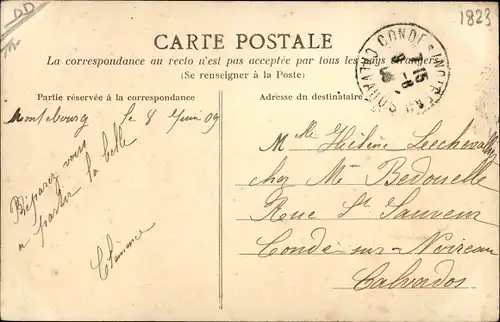 DD
1823
CARTE POSTALE
La correspondance au recto n'est pas acceptée par tous les pays étrangers
(Se renseigner à la Poste)
Partie réservée à la correspondance
Adresse du destinataire
CONDE S NOIREAU
CALVADOS
Montebourg le 8 Juin 09
Préparez vous
a parler la belle
Clémence
Mlle Hélène Lechevallier
chez Me Bedouelle
Rue St Sauveur
Condé-sur-Noireau
Calvados.